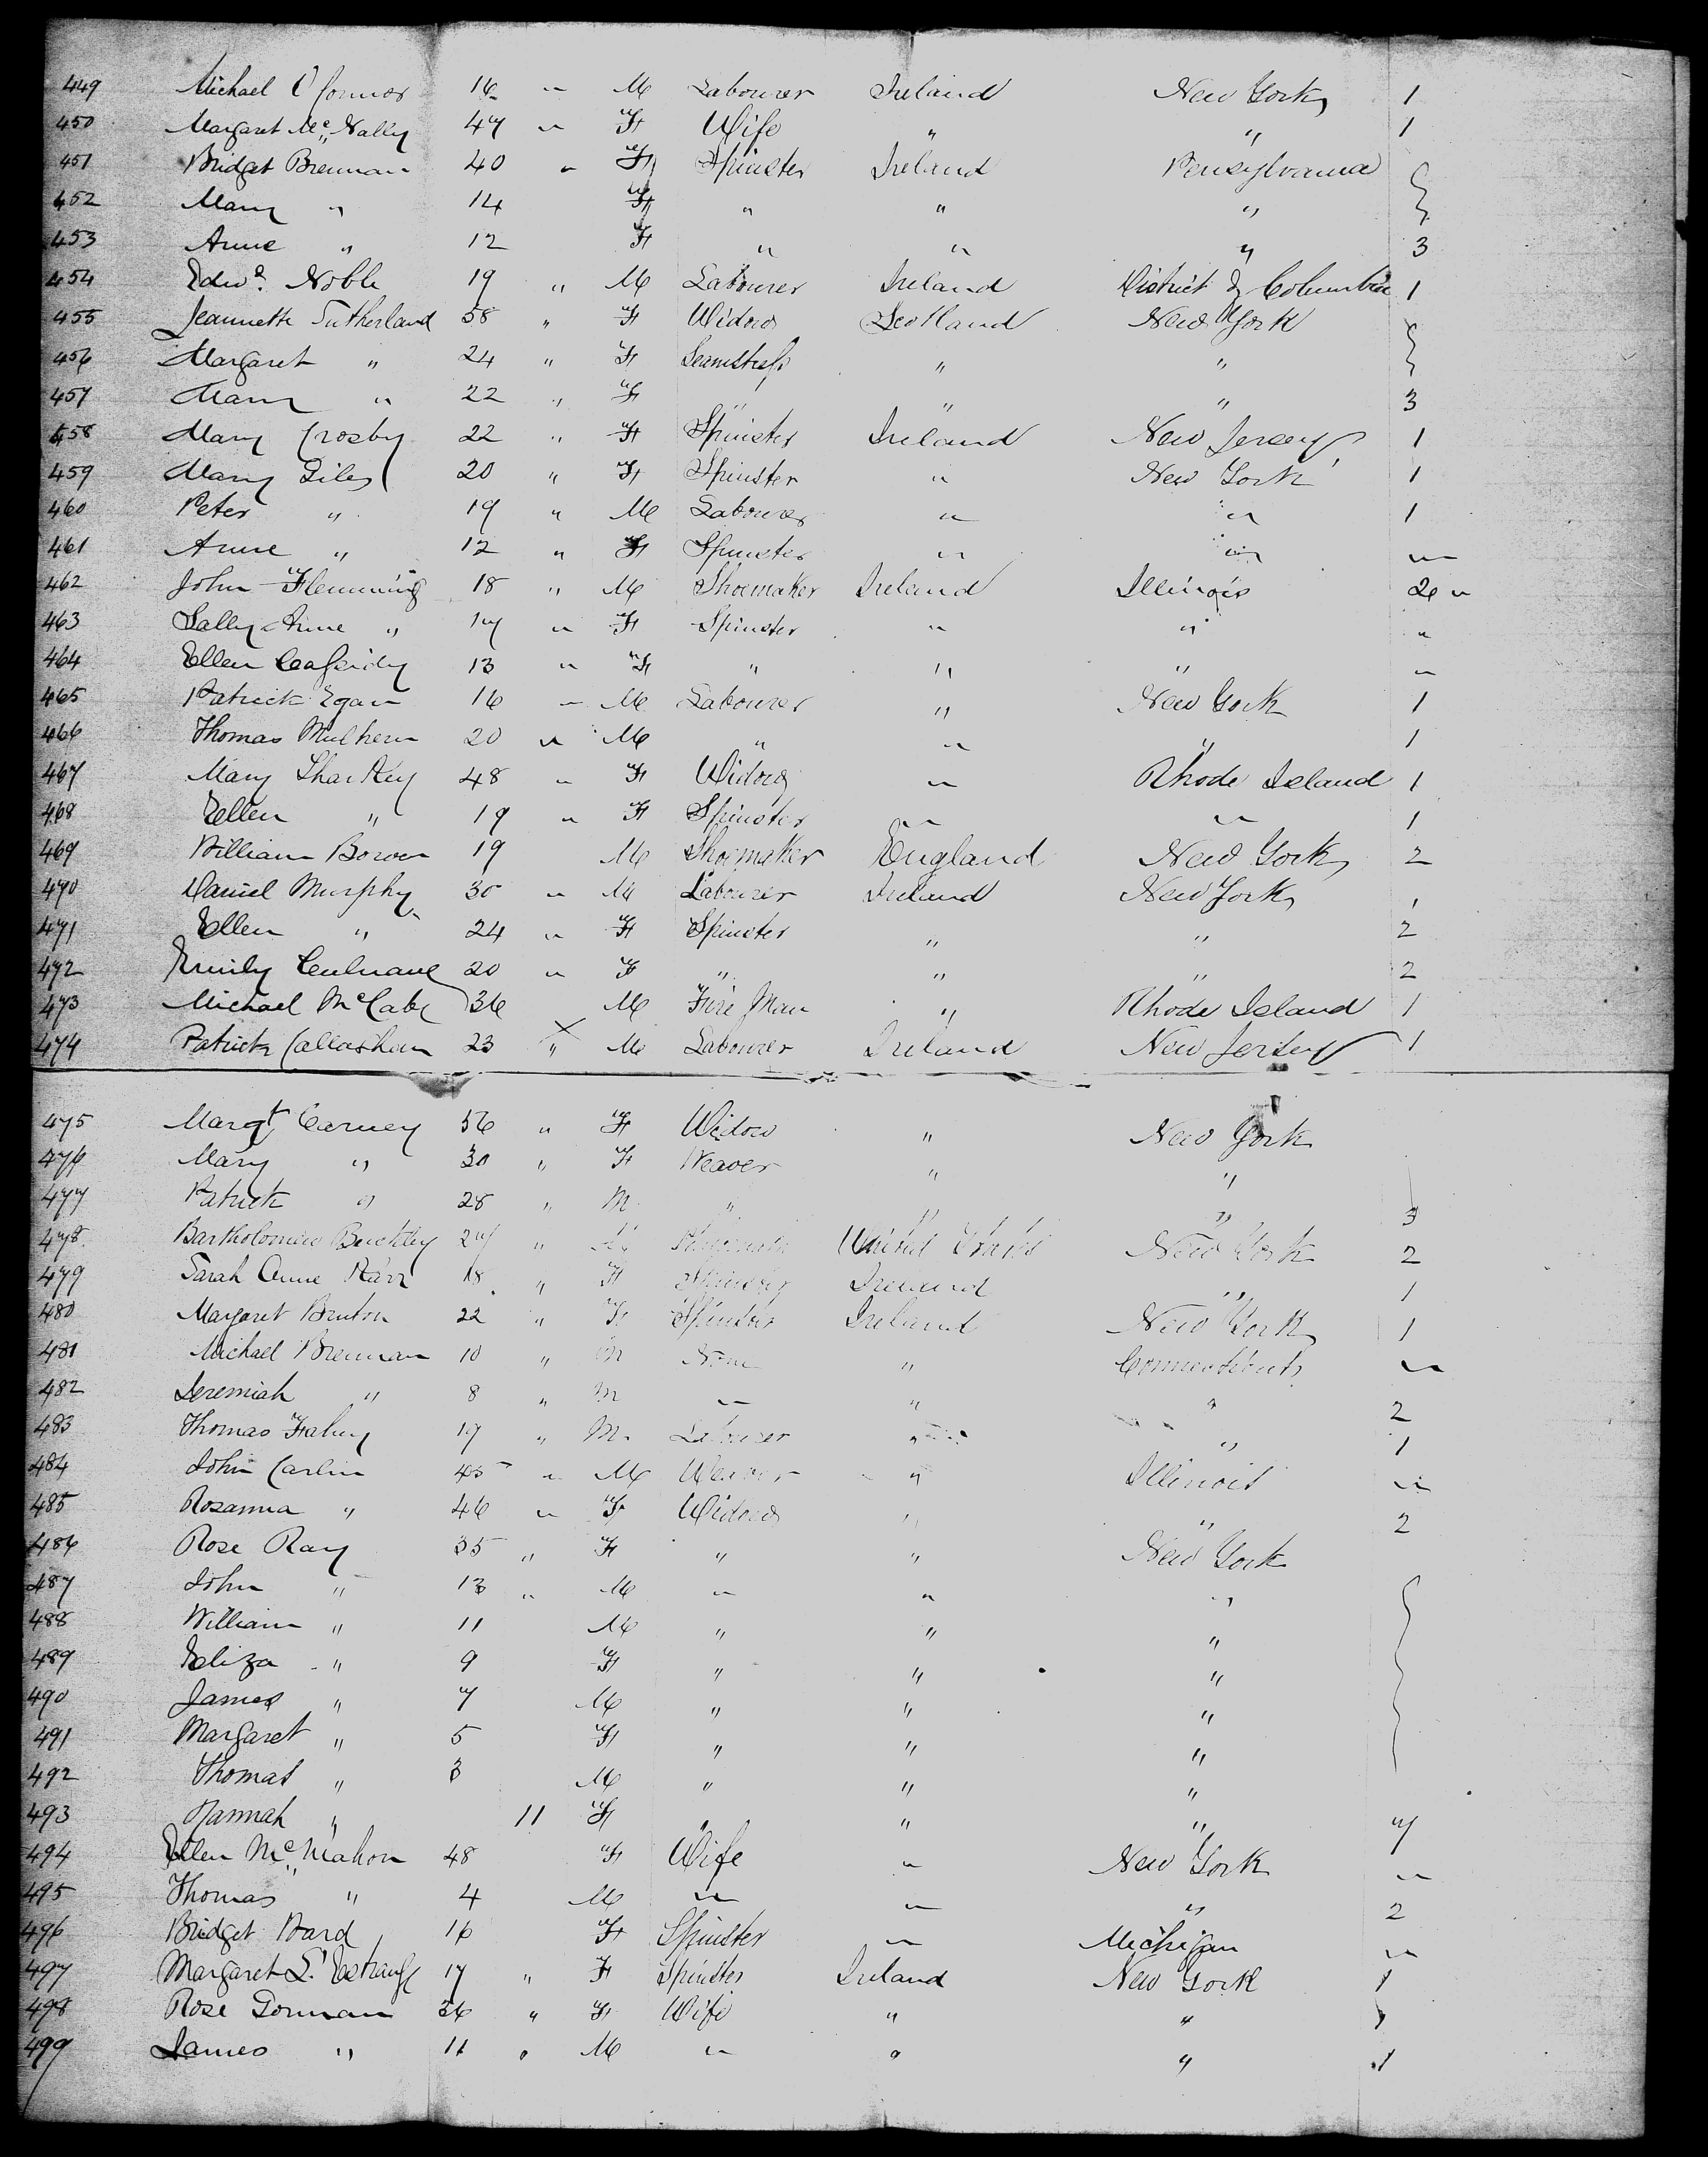 449 Michael O'Connor 16 " M Labourer Ireland New York 1
450 Margaret Mc Nally 47 " F Wife " " 1
451 Bridget Brennan 40 " F Spinster Ireland Pensylvania
452 Mary " 14 F " " "
453 Anne " 12 F " " " 3
454 Edwd. Noble 19 " M Labourer Ireland District of Columbia 1
455 Jeannette Sutherland 58 " F Widow Scotland New York
456 Margaret " 24 " F Seamstress " "
457 Mary " 22 " F " " " 3
458 Mary Crosby 22 " F Spinster Ireland New Jersey 1
459 Mary Giles 20 " F Spinster " New York 1
460 Peter " 19 " M Labourer " " 1
461 Anne " 12 " F Spinster " " "
462 John Flemming 18 " M Shoemaker Ireland Illinois 2 "
463 Sally Anne " 17 " F Spinster " " "
464 Ellen Cassidy 13 " F " " " "
465 Patrick Egan 16 " M Labourer " New York 1
466 Thomas Mulhern 20 " M " " " 1
467 Mary Sharkey 48 " F Widow " Rhode Island 1
468 Ellen " 19 " F Spinster " " 1
469 William Bowen 19 M Shoemaker England New York 2
470 Daniel Murphy 30 " M Labourer Ireland New York
471 Ellen " 24 " F Spinster " " 2
472 Emily 20 " F " " " 2
473 Michael McCabe 36 M Fire Man " Rhode Island 1
474 Patrick Callaghan 23 " M Labourer Ireland New Jersey 1
475 Margt Carney 56 " F Widow " New York
476 Mary " 30 " F Weaver " "
477 Patrick " 28 " M " " " 3
478 Bartholomew Buckley 27 " United States New York 2
479 Sarah Anne 18 " F Spinster Ireland " 1
480 Margaret Bruton 22 " F Spinster Ireland New York 1
481 Michael Brennan 10 " M None " Connecticut "
482 Jeremiah " 8 " M " " " 2
483 Thomas Fahey 19 " M Labourer " " 1
484 John Carlin 45 " M Weaver " Illinois "
485 Rosanna " 46 " F Widow " " 2
486 Rose Ray 35 " F " " New York
487 John " 13 " M " " "
488 William " 11 M " " "
489 Eliza " 9 F " " "
490 James " 7 M " " "
491 Margaret " 5 F " " "
492 Thomas " 3 M " " "
493 Hannah " 11 F " " " 7
494 Ellen Mc Mahon 48 F Wife " New York "
495 Thomas " 4 M " " " 2
496 Bridget Ward 16 F Spinster " Michigan "
497 Margaret L'Estrange 17 " F Spinster Ireland New York 1
498 Rose Gorman 36 " F Wife " " 1
499 James " 11 " M " " " 1